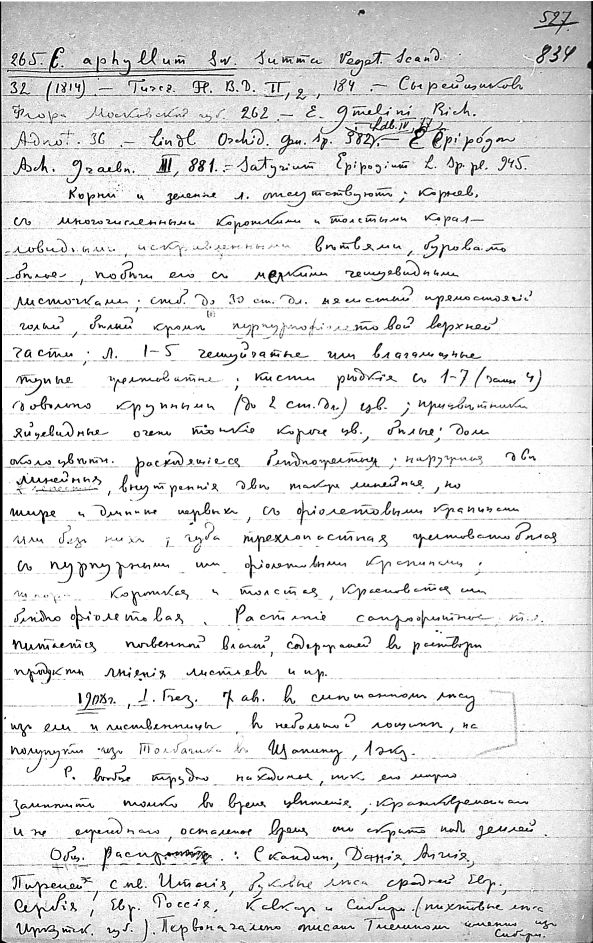 527.
834
265. E. aphyllum Sw. Summa Veget. Scand.
32 (1814) — Turcz. Fl. B.D. II, 2, 184 — Сырейщиков
Флора Московской губ. 262 — E. Gmelini Rich.
Adnot. 36 — Lindl Orchid. gen. sp. 382. — Ldb. IV, 77 E Epipogon
Asch. Graebn. III, 881. — Satyrium Epipogium L. Sp. pl. 945.
Корни и зеленые л. отсутствуютъ; корнев.
съ многочисленными короткими и толстыми корал-
ловидными, искривленными вѣтвями, буровато
бѣлое, побѣги его съ мелкими чешуевидными
листочками; стб. до 30 ст. дл. мясистый прямостоячій
голый, бѣлый кромѣ пурпурнофіолетовой верхней
части; Л. 1-5 чешуйчатые или влагалищные
тупые желтоватые; кисти рѣдкія съ 1-7 (чаще 4)
довольно крупными (до 2 ст. дл.) цв.; прицвѣтники
яйцевидные очень тонкіе короче цв., бѣлые; доли
околоцвѣтн. расходящіеся блѣдножелтые; наружныя двѣ
линейныя, внутреннія двѣ также линейные, но
шире и длиннѣе первыхъ, съ фіолетовыми крапинами
или безъ нихъ; губа трехлопастная желтоватобѣлая
съ пурпурными или фіолетовыми крапинами;
короткая и толстая, красноватая или
блѣднофіолетовая. Растеніе сапрофитное т.е.
питается почвенной влагой, содержащей въ растворѣ
продукты гніенія листьевъ и пр.
1908 г., 7 ав. въ смѣшанномъ лѣсу
изъ ели и лиственницы, въ небольшой лощинѣ, на
полупути изъ Толбачика въ Щапину, 1 экз.
Р. вообще трудно находимое, т.к. его можно
замѣтить только во время цвѣтенія, кратковременнаго
и не ежегоднаго, остальное время оно скрыто подъ землей.
Общ. распр.: Скандин., Данія Англія,
Пиренеи, сѣв. Италія, буковые лѣса средней Евр.,
Сербія, Евр. Россія, Кавказъ и Сибирь (пихтовые лѣса
Иркутск. губ.). Первоначально описанъ Гмелиномъ именно изъ
Сибири.